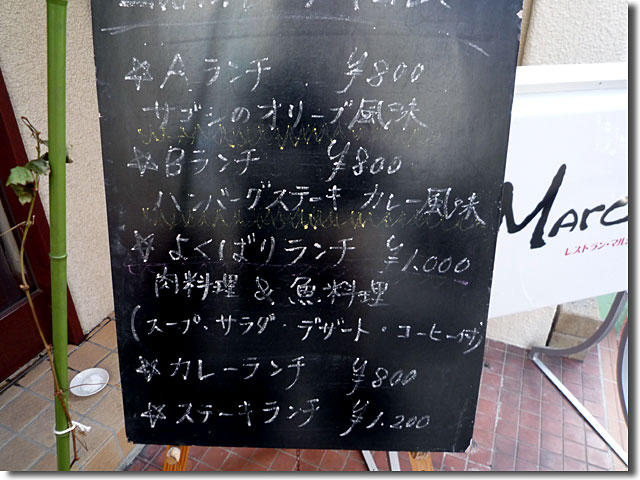 ☆Aランチ ¥800
サゴシのオリーブ風味
☆Bランチ ¥800
ハンバーグステーキ カレー風味
☆よくばりランチ ¥1.000
肉料理 & 魚料理
(スープ・サラダ・デザート・コーヒー付)
☆カレーランチ ¥800
☆ステーキランチ ¥1.200
MARC
レストラン・マル